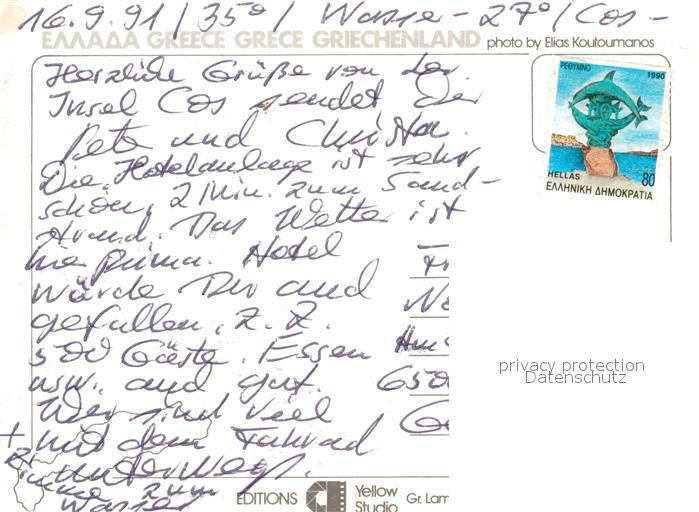 16.9.91 / 35° / Wasser - 27° / Cos -
ΕΛΛΑΔΑ GREECE GRECE GRIECHENLAND photo by Elias Koutoumanos
Herzliche Grüße von der
Insel Cos sendet Der
Pete und Christa.
Die Hotelanlage ist sehr
schön, 2 Min. zum Sand-
strand. Das Wetter ist
hie prima. Hotel
würde Dir auch
gefallen, z. Z.
500 Gäste. Essen
usw. auch gut.
Wir sind viel
mit dem Fahrrad
unterwegs.
+
zum
Wasser
ΡΕΘΥΜΝΟ 1990
HELLAS 80
ΕΛΛΗΝΙΚΗ ΔΗΜΟΚΡΑΤΙΑ
650
privacy protection
Datenschutz
EDITIONS Yellow Studio Gr. Lam